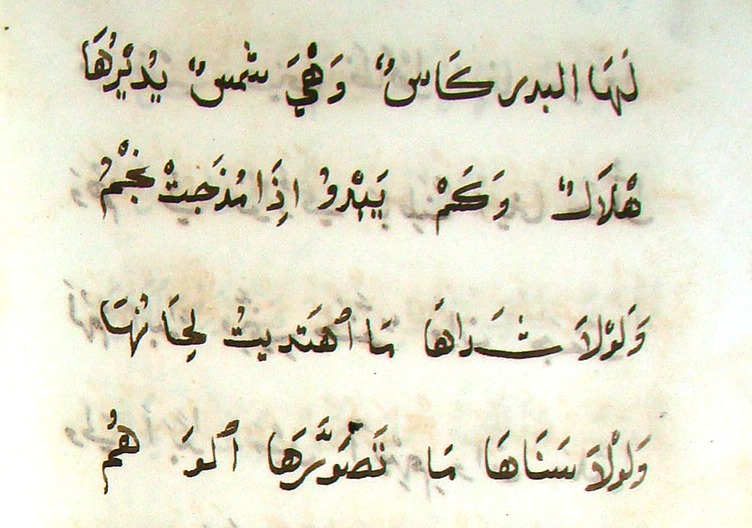 لَهَا البدر كَاسٌ وَهْيَ شمسٌ يُدِيْرُهَا
هْلَالٌ وَكَمْ يَبْدُو اذَا مُذَجَتْ نَجْمُ
وَلَوْلَا شَذَاهَا مَا ٱهْتَديتُ لِحَانِهَا
وَلَوْلَا سَنَاهَا مَا تَصَوَّرَهَا ٱلوَهْمُ